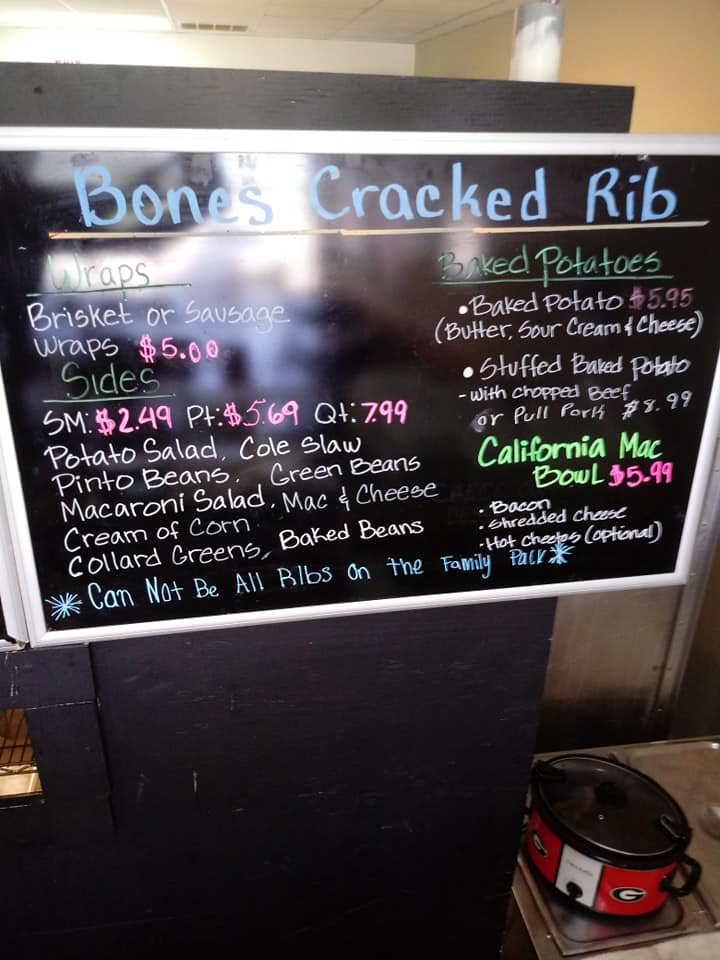 Bones Cracked Rib
Wraps
Brisket or Sausage
Wraps $5.00
Sides
SM: $2.49 Pt: $5.69 Qt: 7.99
Potato Salad, Cole Slaw
Pinto Beans, Green Beans
Macaroni Salad, Mac & Cheese
Cream of Corn
Collard Greens, Baked Beans
Baked Potatoes
• Baked Potato $5.95
(Butter, Sour Cream & Cheese)
• Stuffed Baked Potato
- with chopped Beef
or Pull Pork $8.99
California Mac
Bowl $5.99
• Bacon
• Shredded Cheese
• Hot Cheetos (optional)
* Can Not Be All Ribs On the Family Pack *
G
G